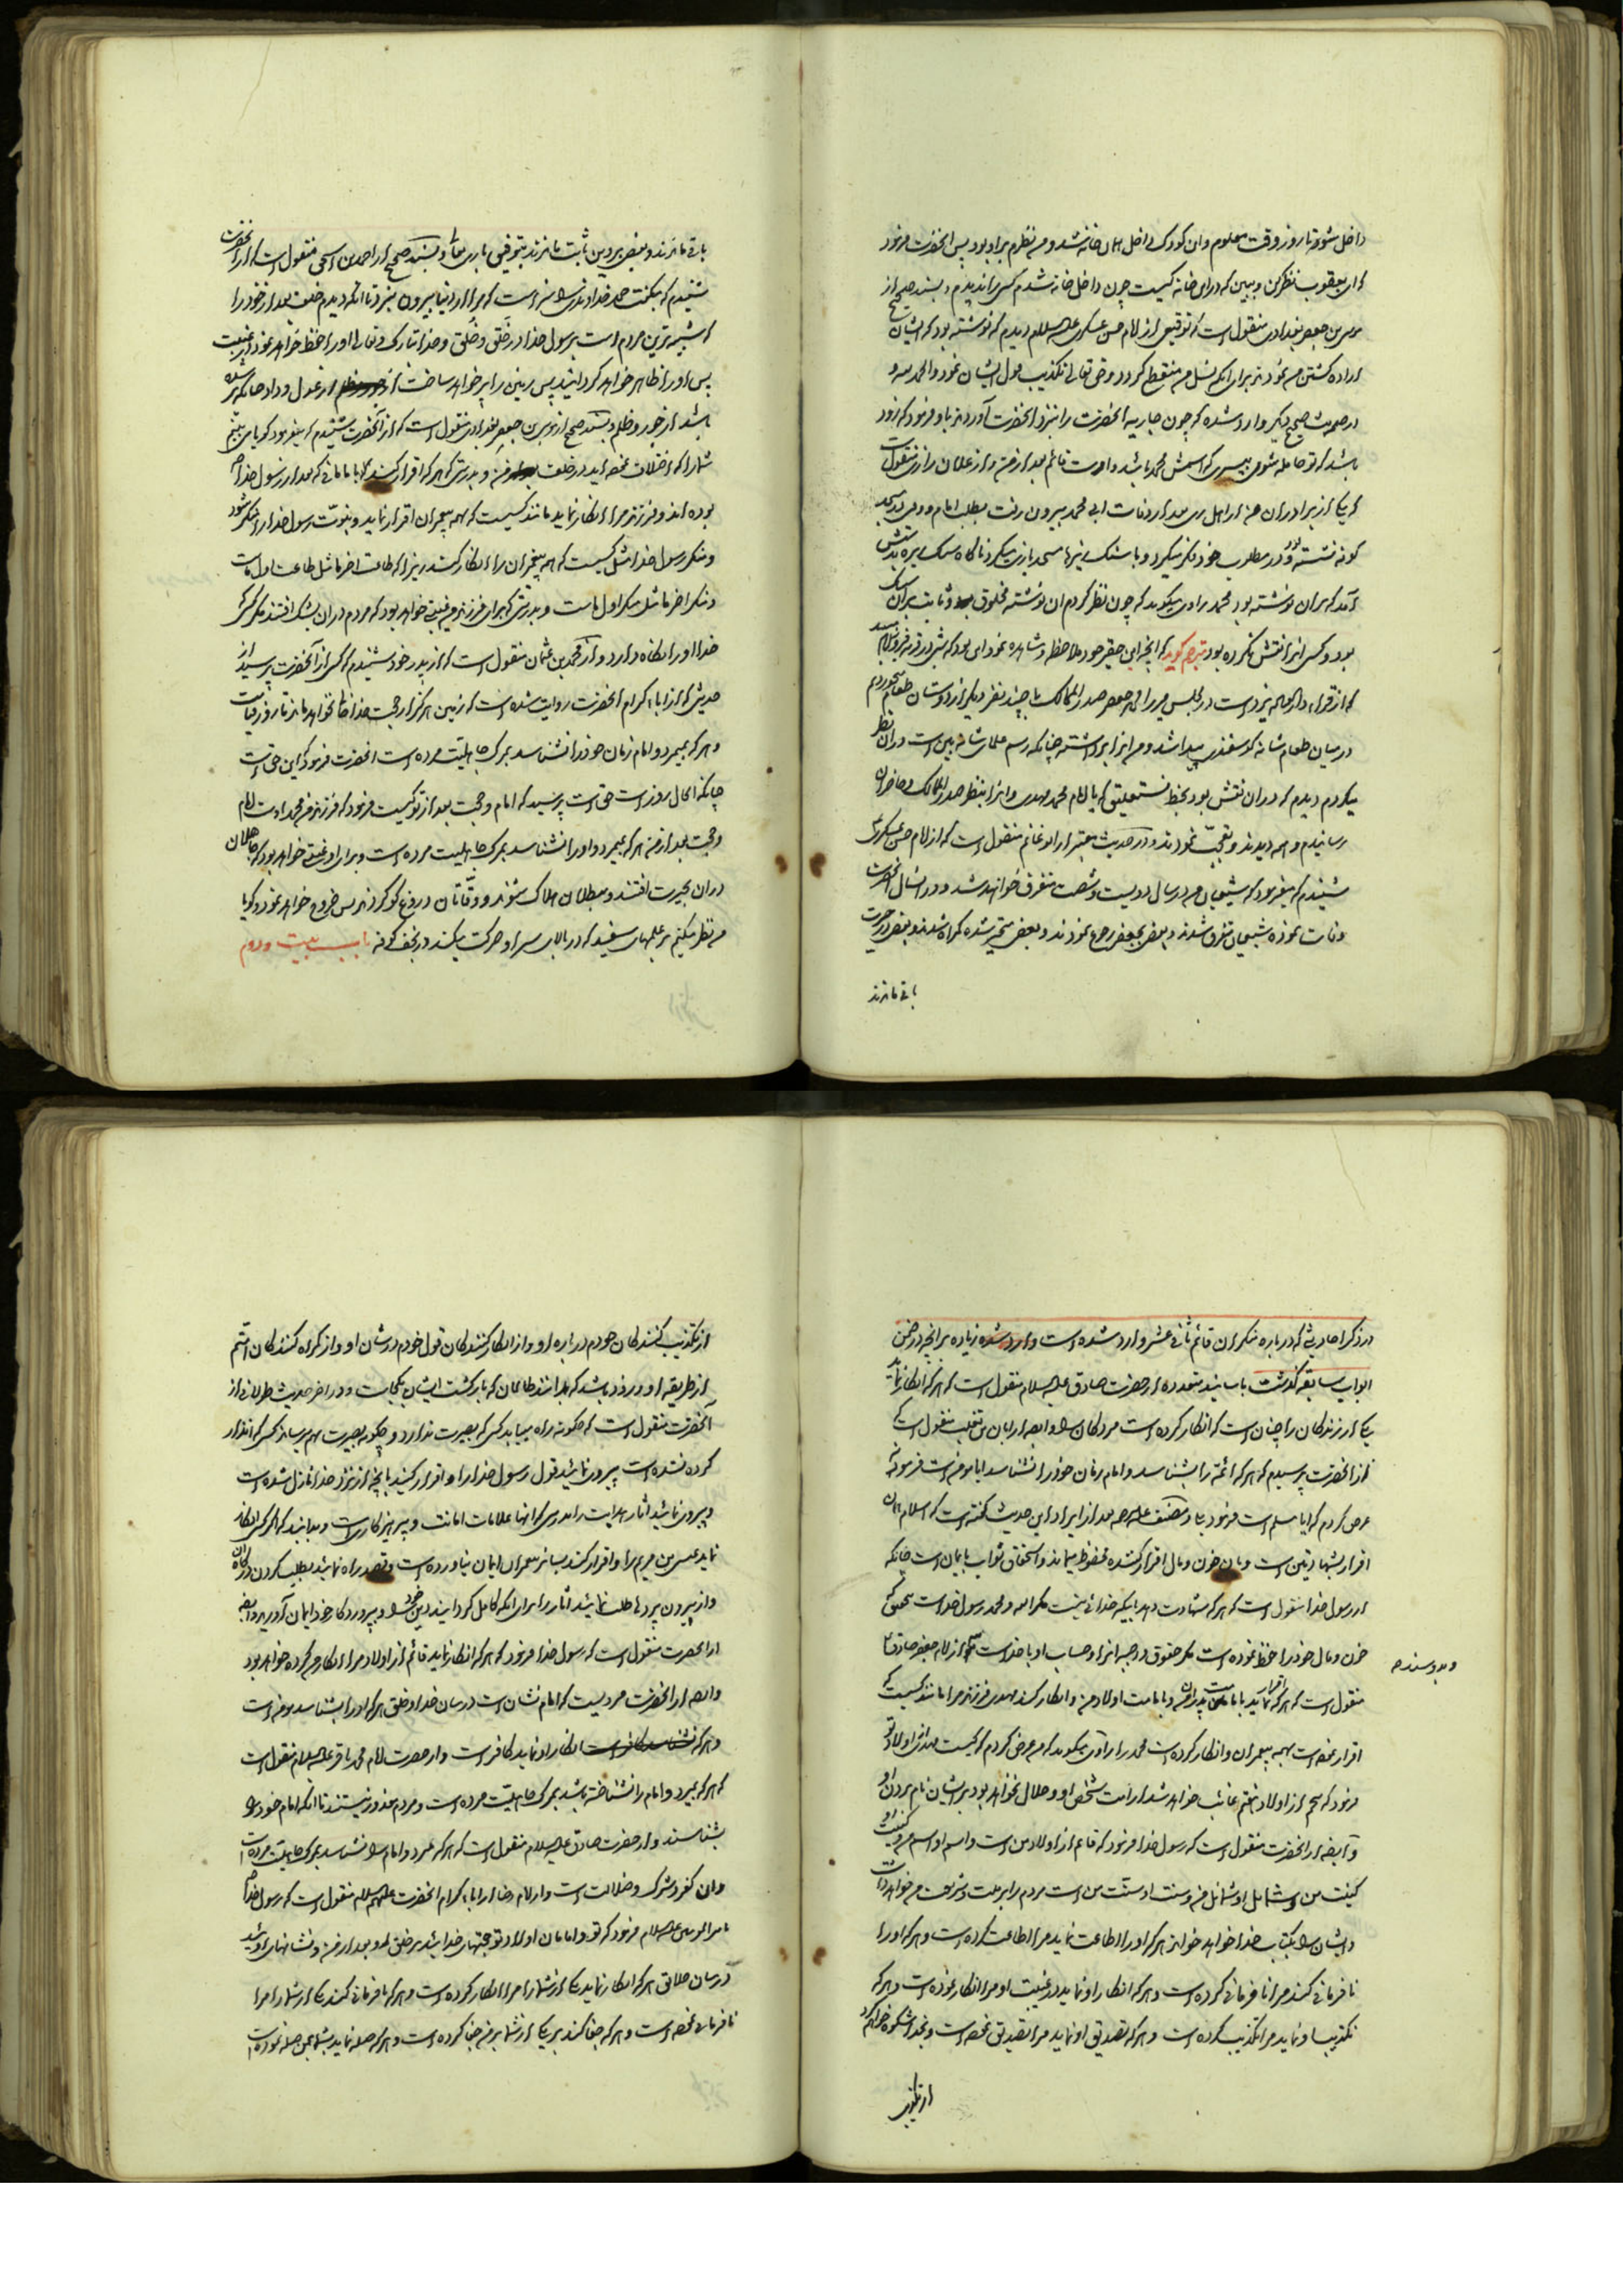 داخل شو تا روز وقت معلوم و ان کودک داخل همان خانه شد و من نظرم بر او بود پس انحضرت فرمود
که ای یعقوب نظر کن و ببین که در این خانه کیست چون داخل خانه شدم کسی را ندیدم و بسند صحیح از
موسی بن جعفر بغدادی منقول است که توقیعی از امام حسن عسکری علیه السلام دیدم که نوشته بود که ایشان
اراده کشتن من نمودند برای انکه نسل من منقطع گردد و حق تعالی تکذیب قول ایشان نمود و الحمد لله و
در حدیث صحیح دیگر وارد شده که چون جاریه انحضرت را بنزد انحضرت آوردند باو فرمود که زود
باشد که تو حامله شوی بپسری که اسمش محمد باشد و اوست قائم بعد از من و از علان رازی منقول است
که یکی از برادران من از اهل ری بعد از وفات ابی محمد بیرون رفت بطلب امام و در مسجد
کوفه نشسته بود و در مطلوب خود فکر میکرد و با سنگ ریزها مسجد بازی میکرد ناگاه سنگ ریزه بدستش
آمد که بران نوشته بود محمد راوی میگوید که چون نظر کردم ان نوشته مخلوق و ثابت بران سنگ
بود و کسی انرا نقش نکرده بود مترجم گوید که انچه این حقیر خود ملاحظه و مشاهده نموده این بود که شبی در قریه فیروزآباد
که از قراء دار العباده یزد است در مجلس میرزا جعفر صدر الممالک با چند نفر دیگر از دوستان طعام میخوردیم
در میان طعام شانه گوسفندی پیدا شد و من انرا برداشته چنانکه رسم علمای شانه بین است دران نظر
میکردم دیدم که دران نقش بود بخط نستعلیق که یا امام محمد مهدی و انرا بنظر صدر الممالک و حاضران
رسانیدم و همه دیدند و تعجب نمودند و در حدیث معتبر از ابو غانم منقول است که از امام حسن عسکری
شنیدم که میفرمود که شیعیان من در سال دویست و شصت متفرق خواهند شد و در انسال انحضرت
وفات نموده شیعیان متفرق شدند و بعضی بجعفر رجوع نمودند و بعضی متحیر شده گمراه شدند و بعضی در حیرت
باقی ماندند
باقی ماندند و بعضی بر دین ثابت ماندند بتوفیق باری تعالی و بسند صحیح از احمد بن اسحق منقول است که از انحضرت
شنیدم که میگفت حمد خداوندی را سزا است که مرا از دنیا بیرون نبرد تا انکه دیدم خلف بعد از خود را
که شبیه ترین مردم است برسول خدا در خَلق و خُلق و خدا تبارک و تعالی او را حفظ خواهد نمود در غیبت
پس او را ظاهر خواهد گردانید پس زمین را پر خواهد ساخت از عدل و داد چنانکه پر شده
باشد از جور و ظلم و بسند صحیح از موسی بن جعفر بغدادی منقول است که از انحضرت شنیدم که میفرمود گویا می بینم
شما را که اختلاف نموده اید در خلف من و بدرستی که هر که اقرار کند بامامانی که بعد از رسول خدا
بوده اند و فرزند مرا انکار نماید مانند کسیست که بهمه پیغمبران اقرار نماید و نبوت رسول خدا را منکر شود
و منکر رسول خدا مثل کسیست که همه پیغمبران را انکار کند زیرا که طاعت اخر ما مثل طاعت اول ماست
و منکر اخر ما مثل منکر اول ماست و بدرستی که برای فرزند من غیبتی خواهد بود که مردم دران بشک افتند مگر کسی که
خدا او را نگاه دارد و از محمد بن عثمان منقول است که از پدر خود شنیدم که کسی از آنحضرت پرسید از
حدیثی که از اباء کرام انحضرت روایت شده است که زمین هرگز از حجت خدا خالی نخواهد ماند تا روز قیامت
و هر که بمیرد و امام زمان خود را نشناسد بمرگ جاهلیت مرده است انحضرت فرمود که این حق است
چنانکه الحال روز است حق است پرسید که امام و حجت بعد از تو کیست فرمود که فرزند من محمد اوست امام
و حجت بعد از من هر که بمیرد و او را نشناسد بمرگ جاهلیت مرده است و برای او غیبتی خواهد بود که جاهلان
دران بحیرت افتند و مبطلان هلاک شوند و وقّاتان دروغ گو گردند پس خروج خواهد نمود و گویا
من نظر میکنم بر علمهای سفید که در بالای سر او حرکت میکند در نجف کوفه باب بیست و دوم
در ذکر احادیثی که درباره منکران قائم ثانی عشر وارد شده است زیاده بر انچه در ضمن
ابواب سابقه گذشت باسانید متعدده از حضرت صادق علیه السلام منقول است که هر که انکار نماید
یکی از زندگان را چنان است که انکار کرده است مردگان را و ایضا از ابان بن تغلب منقول است که
از انحضرت پرسیدم که هر که ائمه را بشناسد و امام زمان خود را نشناسد ایا مومن است فرمود نه
عرض کردم که ایا مسلم است فرمود بلی و مصنف علیه الرحمه بعد از ایراد این حدیث گفته است که اسلام همان
اقرار بشهادتین است و بان خون و مال اقرار کننده محفوظ میماند و استحقاق ثواب بایمان است چنانکه
از رسول خدا منقول است که هر که شهادت دهد باینکه خدائی نیست مگر الله و محمد رسول خداست بتحقیق که
خون و مال خود را حفظ نموده است مگر حقوق واجبه انرا و حساب او با خداست از امام جعفر صادق
و بدو سند
منقول است که هر که اقرار نماید بامامت پدران من و بامامت اولاد من و انکار کند مهدی فرزند مرا مانند کسیست که
اقرار نموده است بهمه پیغمبران و انکار کرده است محمد را راوی میگوید که من عرض کردم که کیست مهدی از اولاد تو
فرمود که پنجم از اولاد هفتم غائب خواهد شد از امت شخص او و حلال نخواهد بود بر ایشان نام بردن او
و ایضا از انحضرت منقول است که رسول خدا فرمود که قائم از اولاد من است و اسم او اسم من و کنیت او
کنیت من و شمایل او شمائل من و سنت او سنّت من است مردم را بر ملت و شریعت من خواهد داشت
و ایشان را بکتاب خدا خواهد خواند هر که او را اطاعت نماید مرا اطاعت کرده است و هر که او را
نافرمانی کند مرا نافرمانی کرده است و هر که انکار او نماید در غیبت او مرا انکار نموده است و هر که
تکذیب او نماید مرا تکذیب کرده است و هر که تصدیق او نماید مرا تصدیق نموده است و بخدا شکوه خواهم کرد
از تکذیب
از تکذیب کنندگان خودم درباره او و از انکار کنندگان قول خودم در شان او و از گمراه کنندگان امتم
از طریقه او و زود باشد که بدانند ظالمان که بازگشت ایشان بکجاست و در اخر حدیث طولانی از
آنحضرت منقول است که چگونه راه مییابد کسی که بصیرت ندارد و چگونه بصیرت بهم میرساند کسی که انذار
کرده نشده است پیروی نمائید قول رسول خدا را و اقرار کنید بانچه از نزد خدا نازل شده است
و پیروی نمائید اثار هدایت را بدرستی که انها علامات امانت و پرهیزکاریست و بدانید که اگر کسی انکار
نماید عیسی بن مریم را و اقرار کند بسائر پیغمبران ایمان نیاورده است و قصد راه نمائید بطلب کردن
و از بیرون پردها طلب نمائید اثار را برای انکه کامل گردانید دین خود را و بپروردگار خود ایمان آورید و ایضا
از انحضرت منقول است که رسول خدا فرمود که هر که انکار نماید قائم از اولاد مرا انکار من کرده خواهد بود
و ایضا از انحضرت مرویست که امام نشان است در میان خدا و خلق هر که او را بشناسد مومن است
و هر که انکار او نماید کافر است و از حضرت امام محمد باقر علیه السلام منقول است
که هر که بمیرد و امام را نشناخته باشد بمرگ جاهلیت مرده است و مردم معذور نیستند تا انکه امام خود را
بشناسند و از حضرت صادق علیه السلام منقول است که هر که بمیرد و امام را نشناسد بمرگ جاهلیت مرده است
و ان کفر و شرک و ضلالت است و از امام رضا از اباء کرام انحضرت علیهم السلام منقول است که رسول خدا
بامیر المومنین علیه السلام فرمود که تو و امامان اولاد تو حجتهای خدائید بر خلق او بعد از من و نشانهای اوئید
در میان خلائق هر که انکار نماید یکی از شما را مرا انکار کرده است و هر که نافرمانی کند یکی از شما را مرا
نافرمانی نموده است و هر که جفا کند بر یکی از شما بر من جفا کرده است و هر که صله نماید بشما بمن صله نموده است